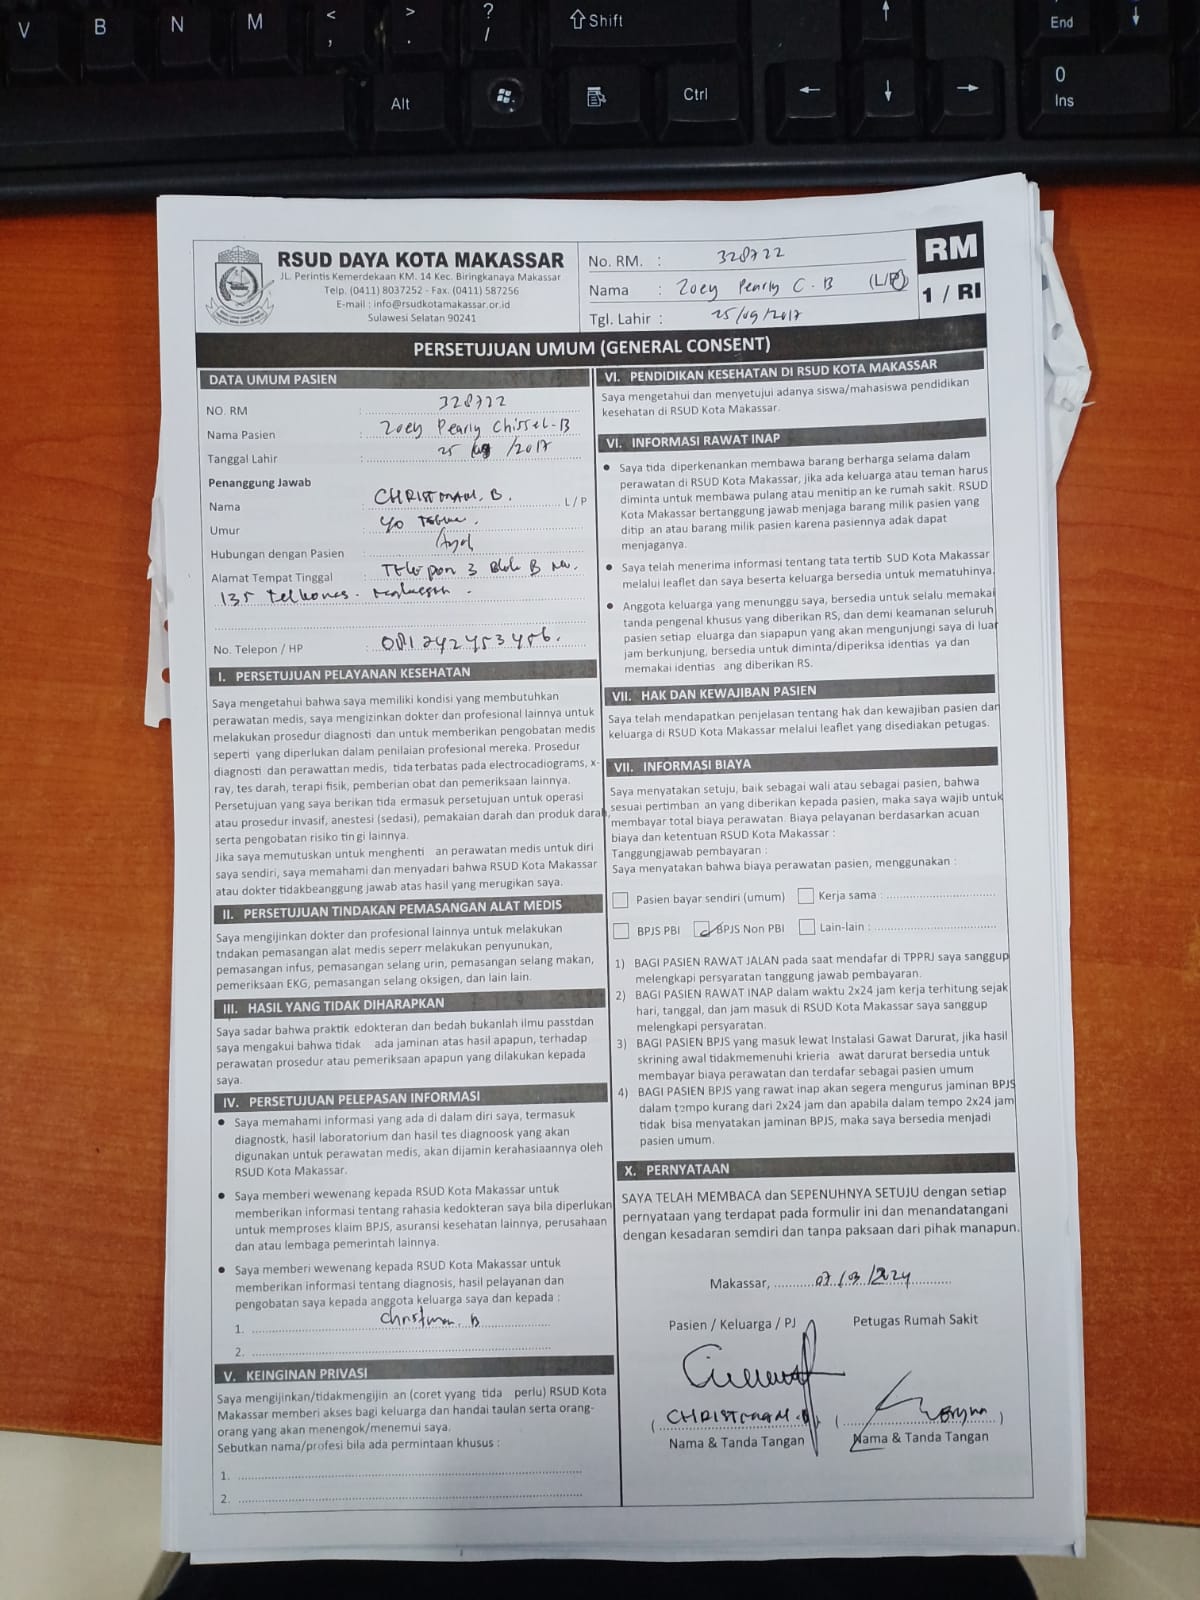 V B N M < , > . ? / Shift End
Alt Ctrl 0 Ins
RSUD DAYA KOTA MAKASSAR
JL. Perintis Kemerdekaan KM. 14 Kec. Biringkanaya Makassar
Telp. (0411) 8037252 - Fax. (0411) 587256
E-mail : info@rsudkotamakassar.or.id
Sulawesi Selatan 90241
No. RM. : 328722
Nama : Zoey Pearly C. B (L/P)
Tgl. Lahir : 25/09/2017
RM
1 / RI
PERSETUJUAN UMUM (GENERAL CONSENT)
DATA UMUM PASIEN
NO. RM : 328722
Nama Pasien : Zoey Pearly Chissel-B
Tanggal Lahir : 25 /2017
Penanggung Jawab
Nama : CHRISTMAN. B. L / P
Umur : 40
Hubungan dengan Pasien : Ayah
Alamat Tempat Tinggal : Telepon 3 Blok B No.
135
No. Telepon / HP : 081242453456.
I. PERSETUJUAN PELAYANAN KESEHATAN
Saya mengetahui bahwa saya memiliki kondisi yang membutuhkan
perawatan medis, saya mengizinkan dokter dan profesional lainnya untuk
melakukan prosedur diagnosti dan untuk memberikan pengobatan medis
seperti yang diperlukan dalam penilaian profesional mereka. Prosedur
diagnosti dan perawattan medis, tida terbatas pada electrocadiograms, x-
ray, tes darah, terapi fisik, pemberian obat dan pemeriksaan lainnya.
Persetujuan yang saya berikan tida ermasuk persetujuan untuk operasi
atau prosedur invasif, anestesi (sedasi), pemakaian darah dan produk darah,
serta pengobatan risiko tin gi lainnya.
Jika saya memutuskan untuk menghenti an perawatan medis untuk diri
saya sendiri, saya memahami dan menyadari bahwa RSUD Kota Makassar
atau dokter tidakbeanggung jawab atas hasil yang merugikan saya.
II. PERSETUJUAN TINDAKAN PEMASANGAN ALAT MEDIS
Saya mengijinkan dokter dan profesional lainnya untuk melakukan
tndakan pemasangan alat medis seperr melakukan penyunukan,
pemasangan infus, pemasangan selang urin, pemasangan selang makan,
pemeriksaan EKG, pemasangan selang oksigen, dan lain lain.
III. HASIL YANG TIDAK DIHARAPKAN
Saya sadar bahwa praktik edokteran dan bedah bukanlah ilmu passtdan
saya mengakui bahwa tidak ada jaminan atas hasil apapun, terhadap
perawatan prosedur atau pemeriksaan apapun yang dilakukan kepada
saya.
IV. PERSETUJUAN PELEPASAN INFORMASI
• Saya memahami informasi yang ada di dalam diri saya, termasuk
diagnostk, hasil laboratorium dan hasil tes diagnoosk yang akan
digunakan untuk perawatan medis, akan dijamin kerahasiaannya oleh
RSUD Kota Makassar.
• Saya memberi wewenang kepada RSUD Kota Makassar untuk
memberikan informasi tentang rahasia kedokteran saya bila diperlukan
untuk memproses klaim BPJS, asuransi kesehatan lainnya, perusahaan
dan atau lembaga pemerintah lainnya.
• Saya memberi wewenang kepada RSUD Kota Makassar untuk
memberikan informasi tentang diagnosis, hasil pelayanan dan
pengobatan saya kepada anggota keluarga saya dan kepada :
1. Christman. B
2.
V. KEINGINAN PRIVASI
Saya mengijinkan/tidakmengijin an (coret yyang tida perlu) RSUD Kota
Makassar memberi akses bagi keluarga dan handai taulan serta orang-
orang yang akan menengok/menemui saya.
Sebutkan nama/profesi bila ada permintaan khusus :
1.
2.
VI. PENDIDIKAN KESEHATAN DI RSUD KOTA MAKASSAR
Saya mengetahui dan menyetujui adanya siswa/mahasiswa pendidikan
kesehatan di RSUD Kota Makassar.
VI. INFORMASI RAWAT INAP
• Saya tida diperkenankan membawa barang berharga selama dalam
perawatan di RSUD Kota Makassar, jika ada keluarga atau teman harus
diminta untuk membawa pulang atau menitip an ke rumah sakit. RSUD
Kota Makassar bertanggung jawab menjaga barang milik pasien yang
ditip an atau barang milik pasien karena pasiennya adak dapat
menjaganya.
• Saya telah menerima informasi tentang tata tertib SUD Kota Makassar
melalui leaflet dan saya beserta keluarga bersedia untuk mematuhinya.
• Anggota keluarga yang menunggu saya, bersedia untuk selalu memakai
tanda pengenal khusus yang diberikan RS, dan demi keamanan seluruh
pasien setiap eluarga dan siapapun yang akan mengunjungi saya di luar
jam berkunjung, bersedia untuk diminta/diperiksa identias ya dan
memakai identias ang diberikan RS.
VII. HAK DAN KEWAJIBAN PASIEN
Saya telah mendapatkan penjelasan tentang hak dan kewajiban pasien dan
keluarga di RSUD Kota Makassar melalui leaflet yang disediakan petugas.
VII. INFORMASI BIAYA
Saya menyatakan setuju, baik sebagai wali atau sebagai pasien, bahwa
sesuai pertimban an yang diberikan kepada pasien, maka saya wajib untuk
membayar total biaya perawatan. Biaya pelayanan berdasarkan acuan
biaya dan ketentuan RSUD Kota Makassar :
Tanggungjawab pembayaran :
Saya menyatakan bahwa biaya perawatan pasien, menggunakan :
Pasien bayar sendiri (umum) Kerja sama :
BPJS PBI BPJS Non PBI Lain-lain :
1) BAGI PASIEN RAWAT JALAN pada saat mendafar di TPPRJ saya sanggup
melengkapi persyaratan tanggung jawab pembayaran.
2) BAGI PASIEN RAWAT INAP dalam waktu 2x24 jam kerja terhitung sejak
hari, tanggal, dan jam masuk di RSUD Kota Makassar saya sanggup
melengkapi persyaratan.
3) BAGI PASIEN BPJS yang masuk lewat Instalasi Gawat Darurat, jika hasil
skrining awal tidakmemenuhi krieria awat darurat bersedia untuk
membayar biaya perawatan dan terdafar sebagai pasien umum
4) BAGI PASIEN BPJS yang rawat inap akan segera mengurus jaminan BPJS
dalam tempo kurang dari 2x24 jam dan apabila dalam tempo 2x24 jam
tidak bisa menyatakan jaminan BPJS, maka saya bersedia menjadi
pasien umum.
X. PERNYATAAN
SAYA TELAH MEMBACA dan SEPENUHNYA SETUJU dengan setiap
pernyataan yang terdapat pada formulir ini dan menandatangani
dengan kesadaran semdiri dan tanpa paksaan dari pihak manapun.
Makassar, 07/03/2024
Pasien / Keluarga / PJ Petugas Rumah Sakit
( CHRISTMAN. B ) ( )
Nama & Tanda Tangan Nama & Tanda Tangan